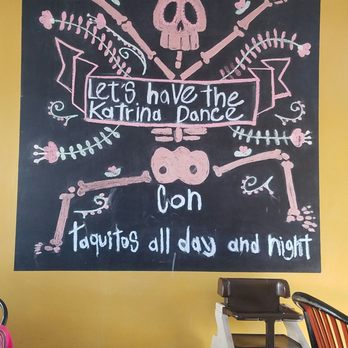 Let's have the
Katrina Dance
Con
Taquitos all day and night